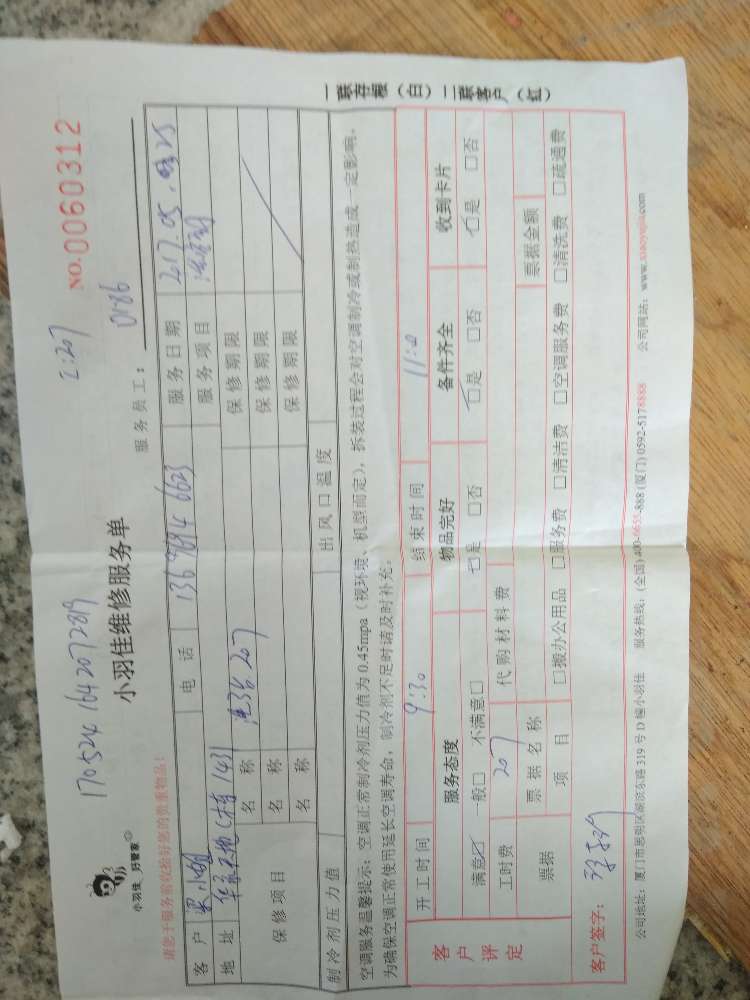 170524 1642072819
2:207
NO.0060312
小羽佳 好管家
小羽佳维修服务单
服务员工： 0186
请您于服务前收捡好您的贵重物品！
客户 电话 136 9694 6623 服务日期 217.05.
地址 服务项目
保修项目 名称 207 保修期限
名称 保修期限
名称 保修期限
制冷剂压力值 出风口温度
空调服务温馨提示：空调正常制冷剂压力值为0.45mpa（视环境、机型而定），拆装过程会对空调制冷或制热造成一定影响，
为确保空调正常使用延长空调寿命，制冷剂不足时请及时补充。
客户评定
开工时间 9:30 结束时间 11:0
服务态度 物品完好 备件齐全 收到卡片
满意☑ 一般□ 不满意□ ☑是 □否 ☑是 □否 ☑是 □否
工时费 207 代购材料费
票据 票据名称 票据金额
项目 □搬办公用品 □服务费 □清洁费 □空调服务费 □清洗费 □疏通费
客户签字：
公司地址：厦门市思明区湖滨东路319号D幢小羽佳 服务热线：(全国)400-6655-888 (厦门)0592-5178888 公司网站：www.xiaoyujia.com
一联存根（白）二联客户（红）